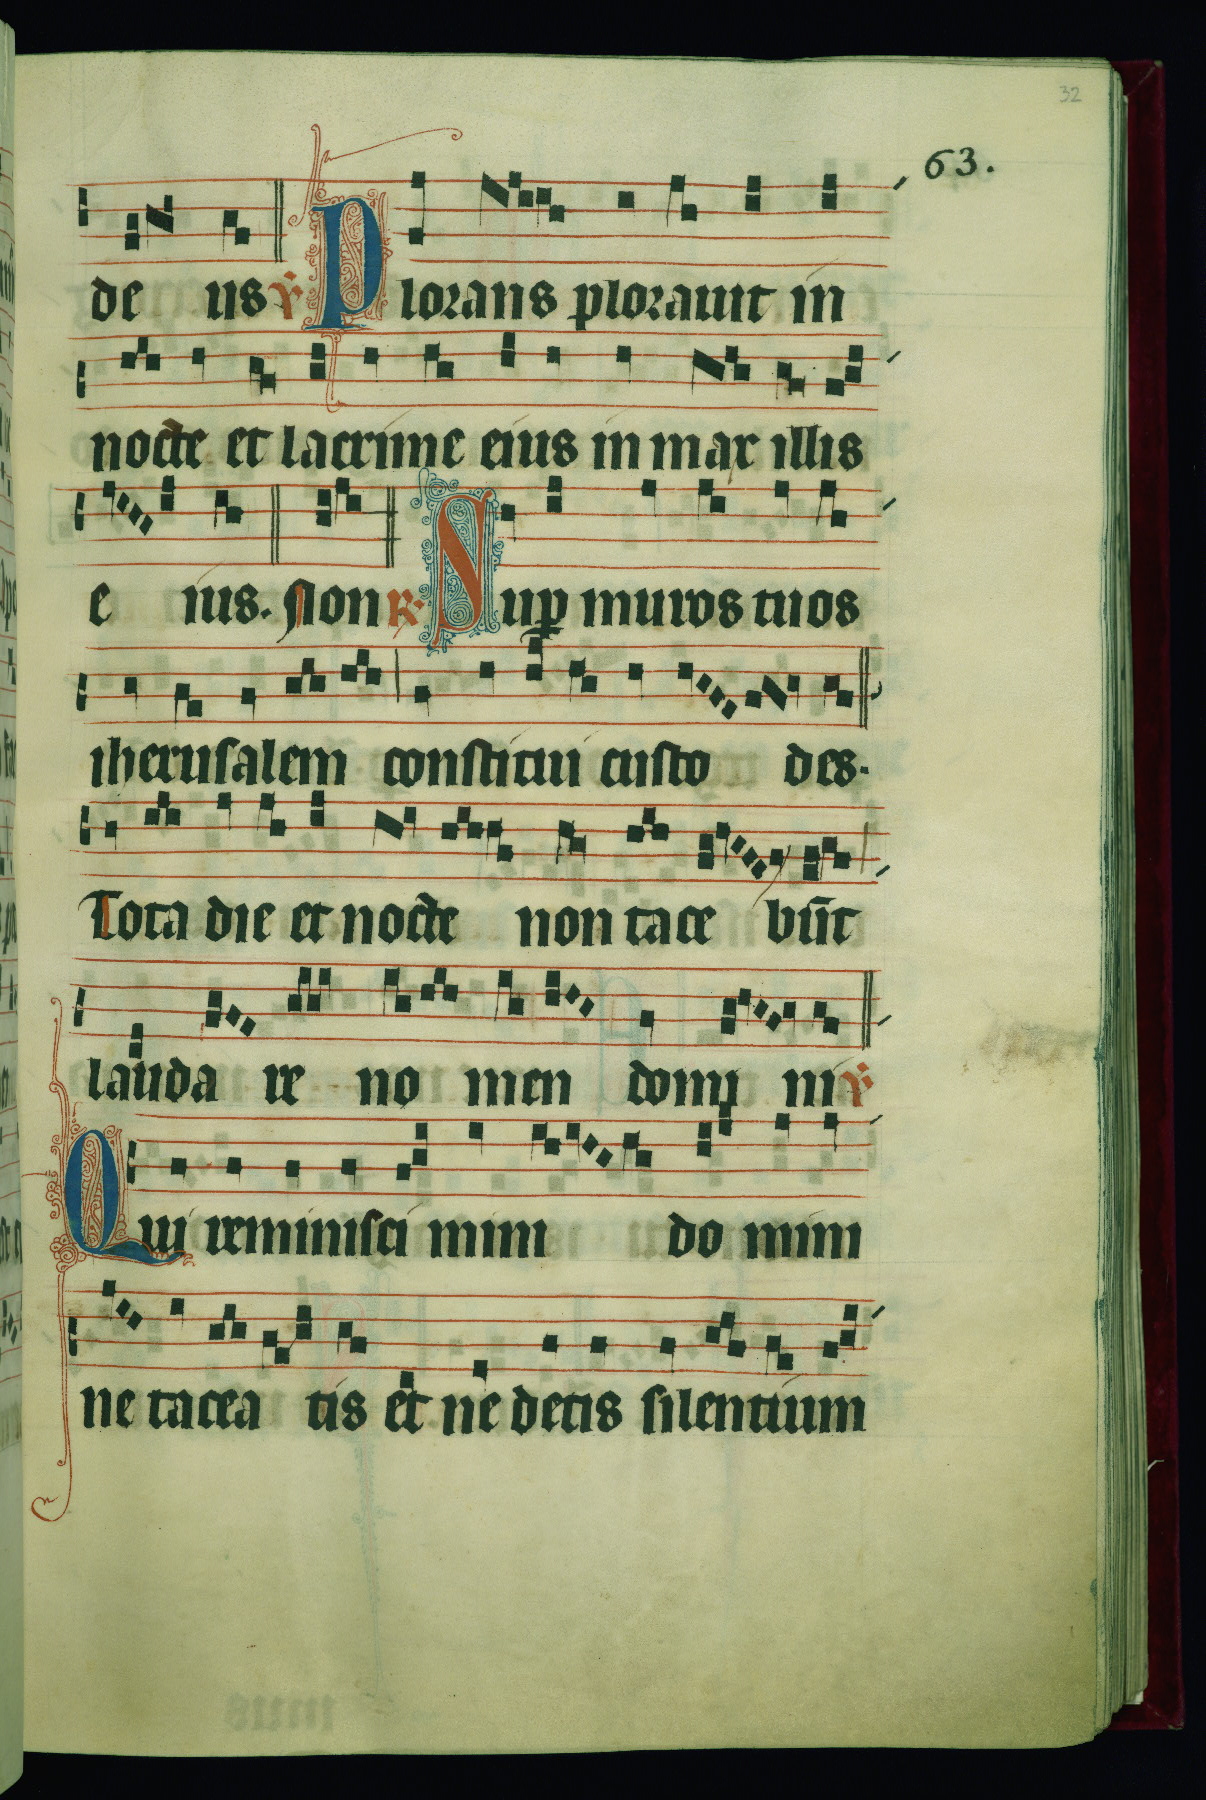 32
63.
de us ℣ Plorans plorauit in
nocte et lacrime eius in maxillis
e ius. sion ℟ Sup muros tuos
iherusalem constitui custo des.
Tota die et nocte non tace būt
lauda re no men domi ni ℣
Qui reminiscimini do mini
ne tacea tis et ne detis silentium